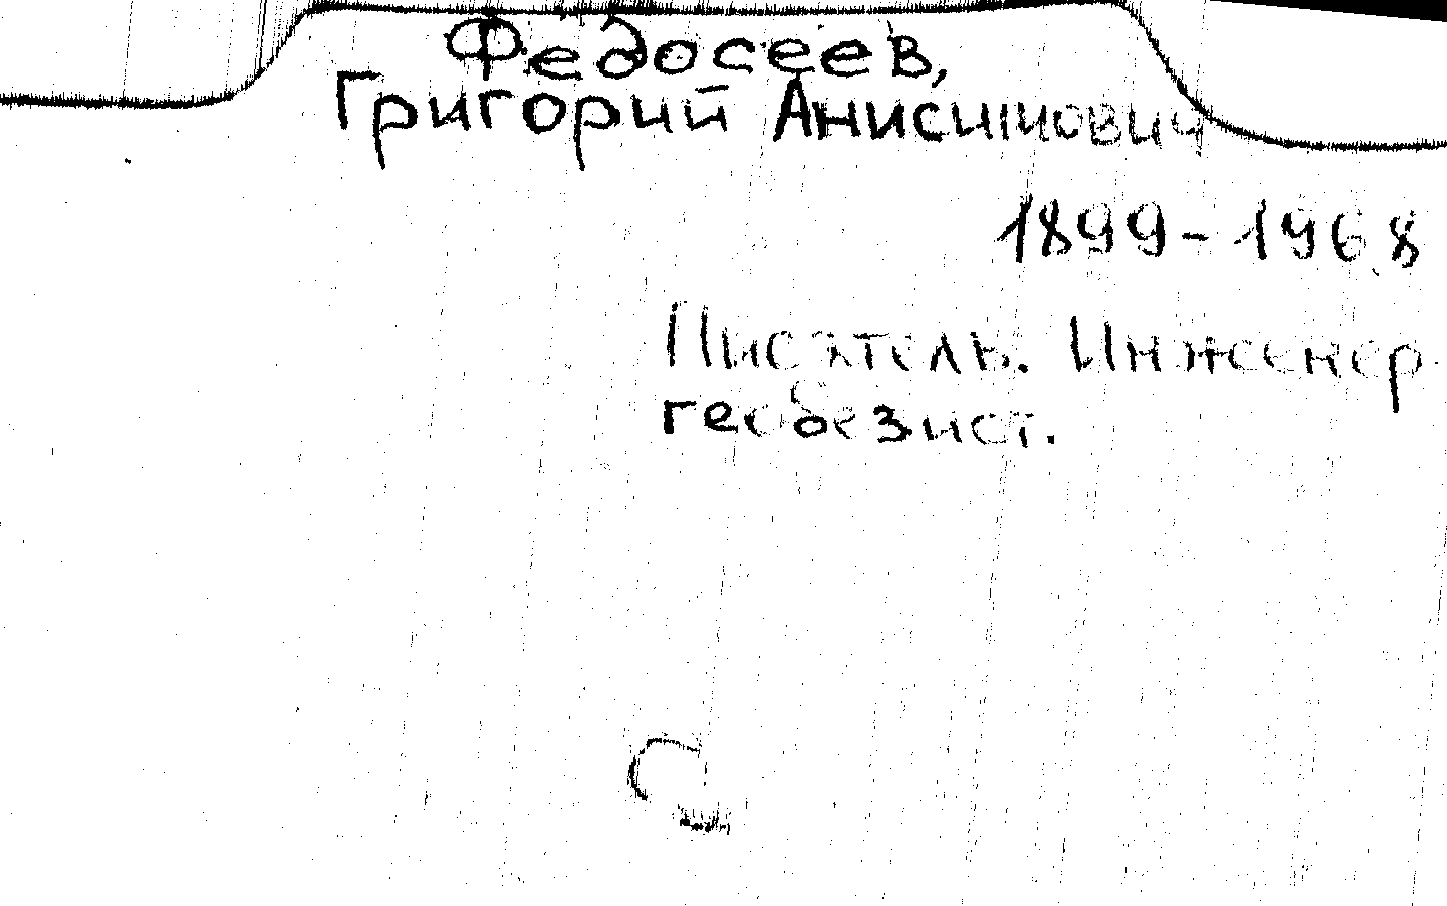 Федосеев,
Григорий Анисимович
1899-1968
Писатель. Инженер
геодезист.